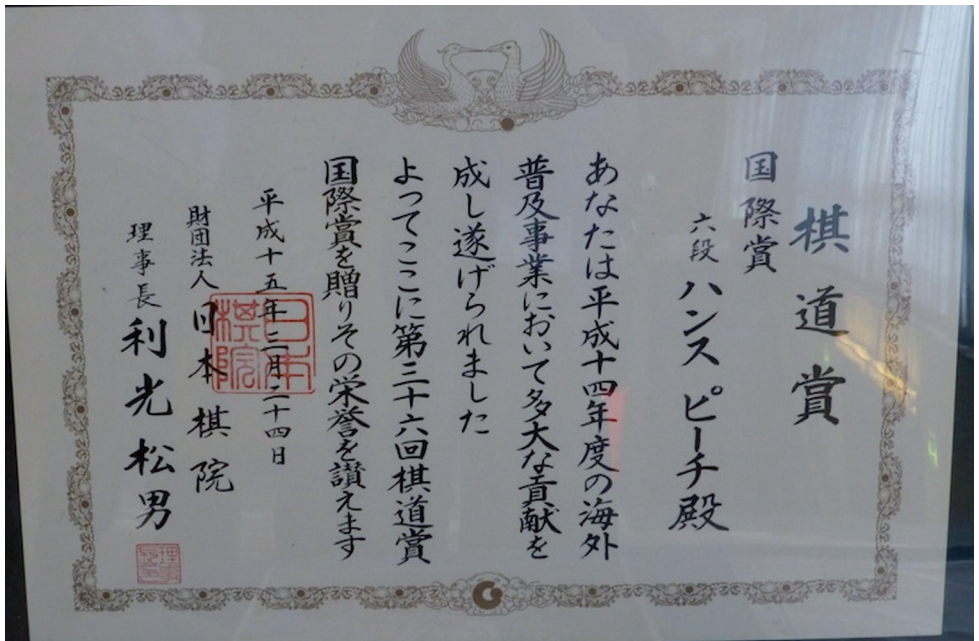 棋道賞
国際賞
六段 ハンス ピーチ殿
あなたは平成十四年度の海外
普及事業において多大な貢献を
成し遂げられました
よってここに第三十六回棋道賞
国際賞を贈りその栄誉を讃えます
平成十五年二月二十四日
財団法人 日本棋院
理事長 利光松男
日本
棋院